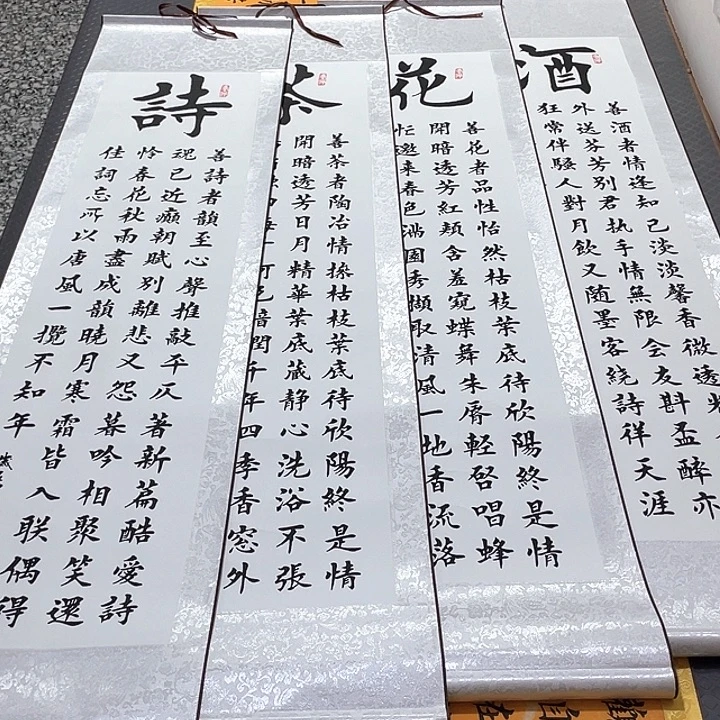 詩
善詩者韻至心聲推敲平仄著新篇酷愛詩
魂已近癲朝賦別離悲又怨暮吟相聚笑還
怜春花秋雨盡成韻曉月寒霜皆入联偶得
佳詞忘所以唐風一攬不知年
茶
善茶者陶冶情操枯枝葉底待欣陽終是情
開暗透芳日月精華葉底藏静心洗浴不張
千年四季香窓外
花
善花者品性怡然枯枝葉底待欣陽終是情
開暗透芳紅頰含羞窺蝶舞朱唇輕啓唱蜂
忙邀来春色滿園秀擷取清風一地香流落
酒
善酒者情逢知己淡淡馨香微透
外送芬芳别君执手情無限会友斟盃醉亦
狂常伴騷人對月飲又随墨客绕詩徉天涯